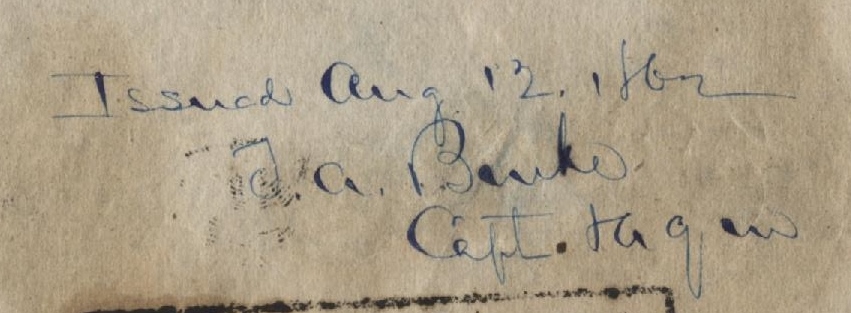 Issued Aug 12. 1862
J. A. Banks
Capt. & A Q M